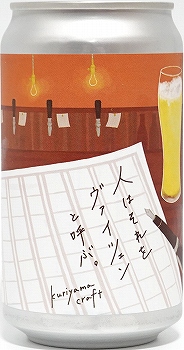 人はそれを
ヴァイツェン
と呼ぶ。
kuriyama
craft